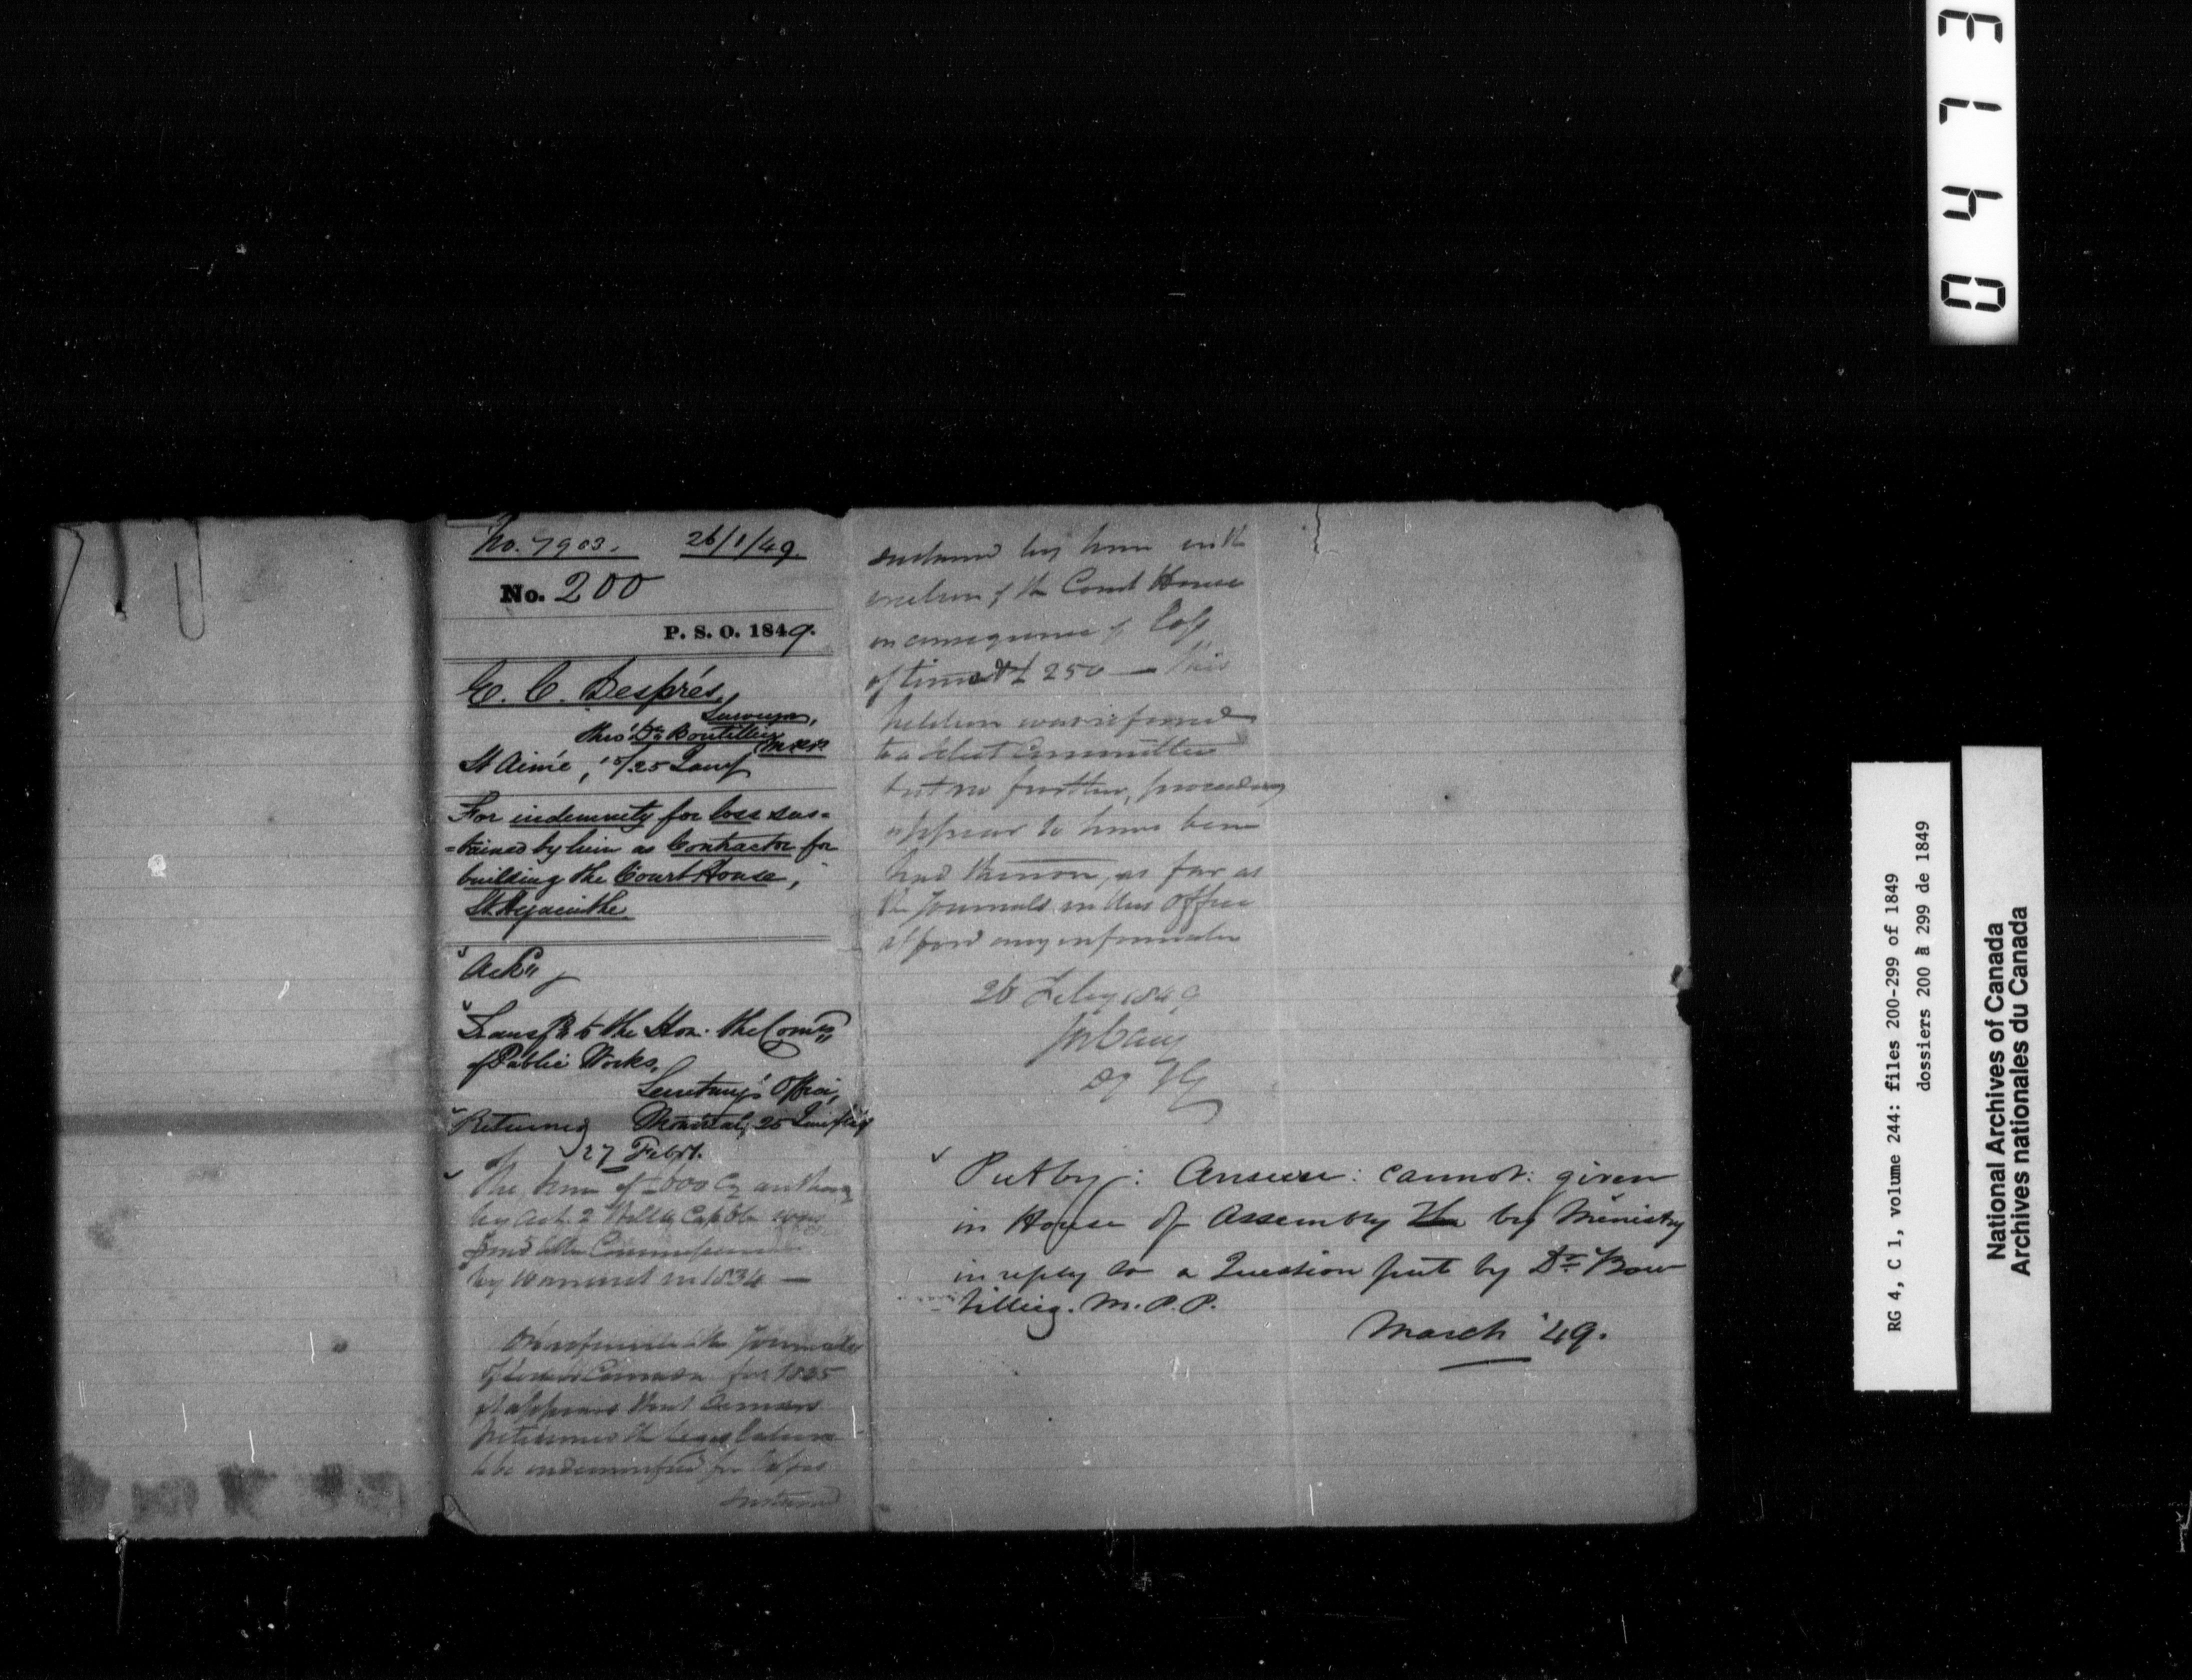 No. 7903. 26/1/49
No. 200
P. S. O. 1849.
E. C. Després,
Surveyor,
thro' Dr Boutillier
M.P.P.
St Aimé, 25 Jany
For indemnity for loss sus-
-tained by him as Contractor for
building the Court House,
St. Hyacinthe
Ackd
Transfd to the Hon. the Comrs
of Public Works,
Secretary's Office,
Returned Montreal,
27 Feby.
The sum of £600 Cy
by Act 2 Will 4 Cap was
by Warrant in 1834 —
On reference to the Journals
of for 1835
it appears that
petitioned the Legislature
to be indemnified for
sustained
sustained by him in the
erection of the Court House
in consequence of
of time £250 — This
Petition was referred
to a select Committee
but no further proceedings
appear to have been
had thereon, as far as
the Journals in this Office
afford any information
26 Feby 1849
Put by: Answer: cannot: given
in House of Assembly by Ministry
in reply to a Question put by Dr Bou
tillier. M. P. P.
March '49.
0473
RG 4, C 1, volume 244: files 200-299 of 1849
dossiers 200 à 299 de 1849
National Archives of Canada
Archives nationales du Canada